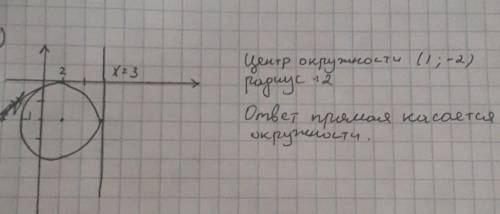 )
2
x=3
-1
Центр окружности (1;-2)
радиус 2
Ответ прямая касается
окружности.